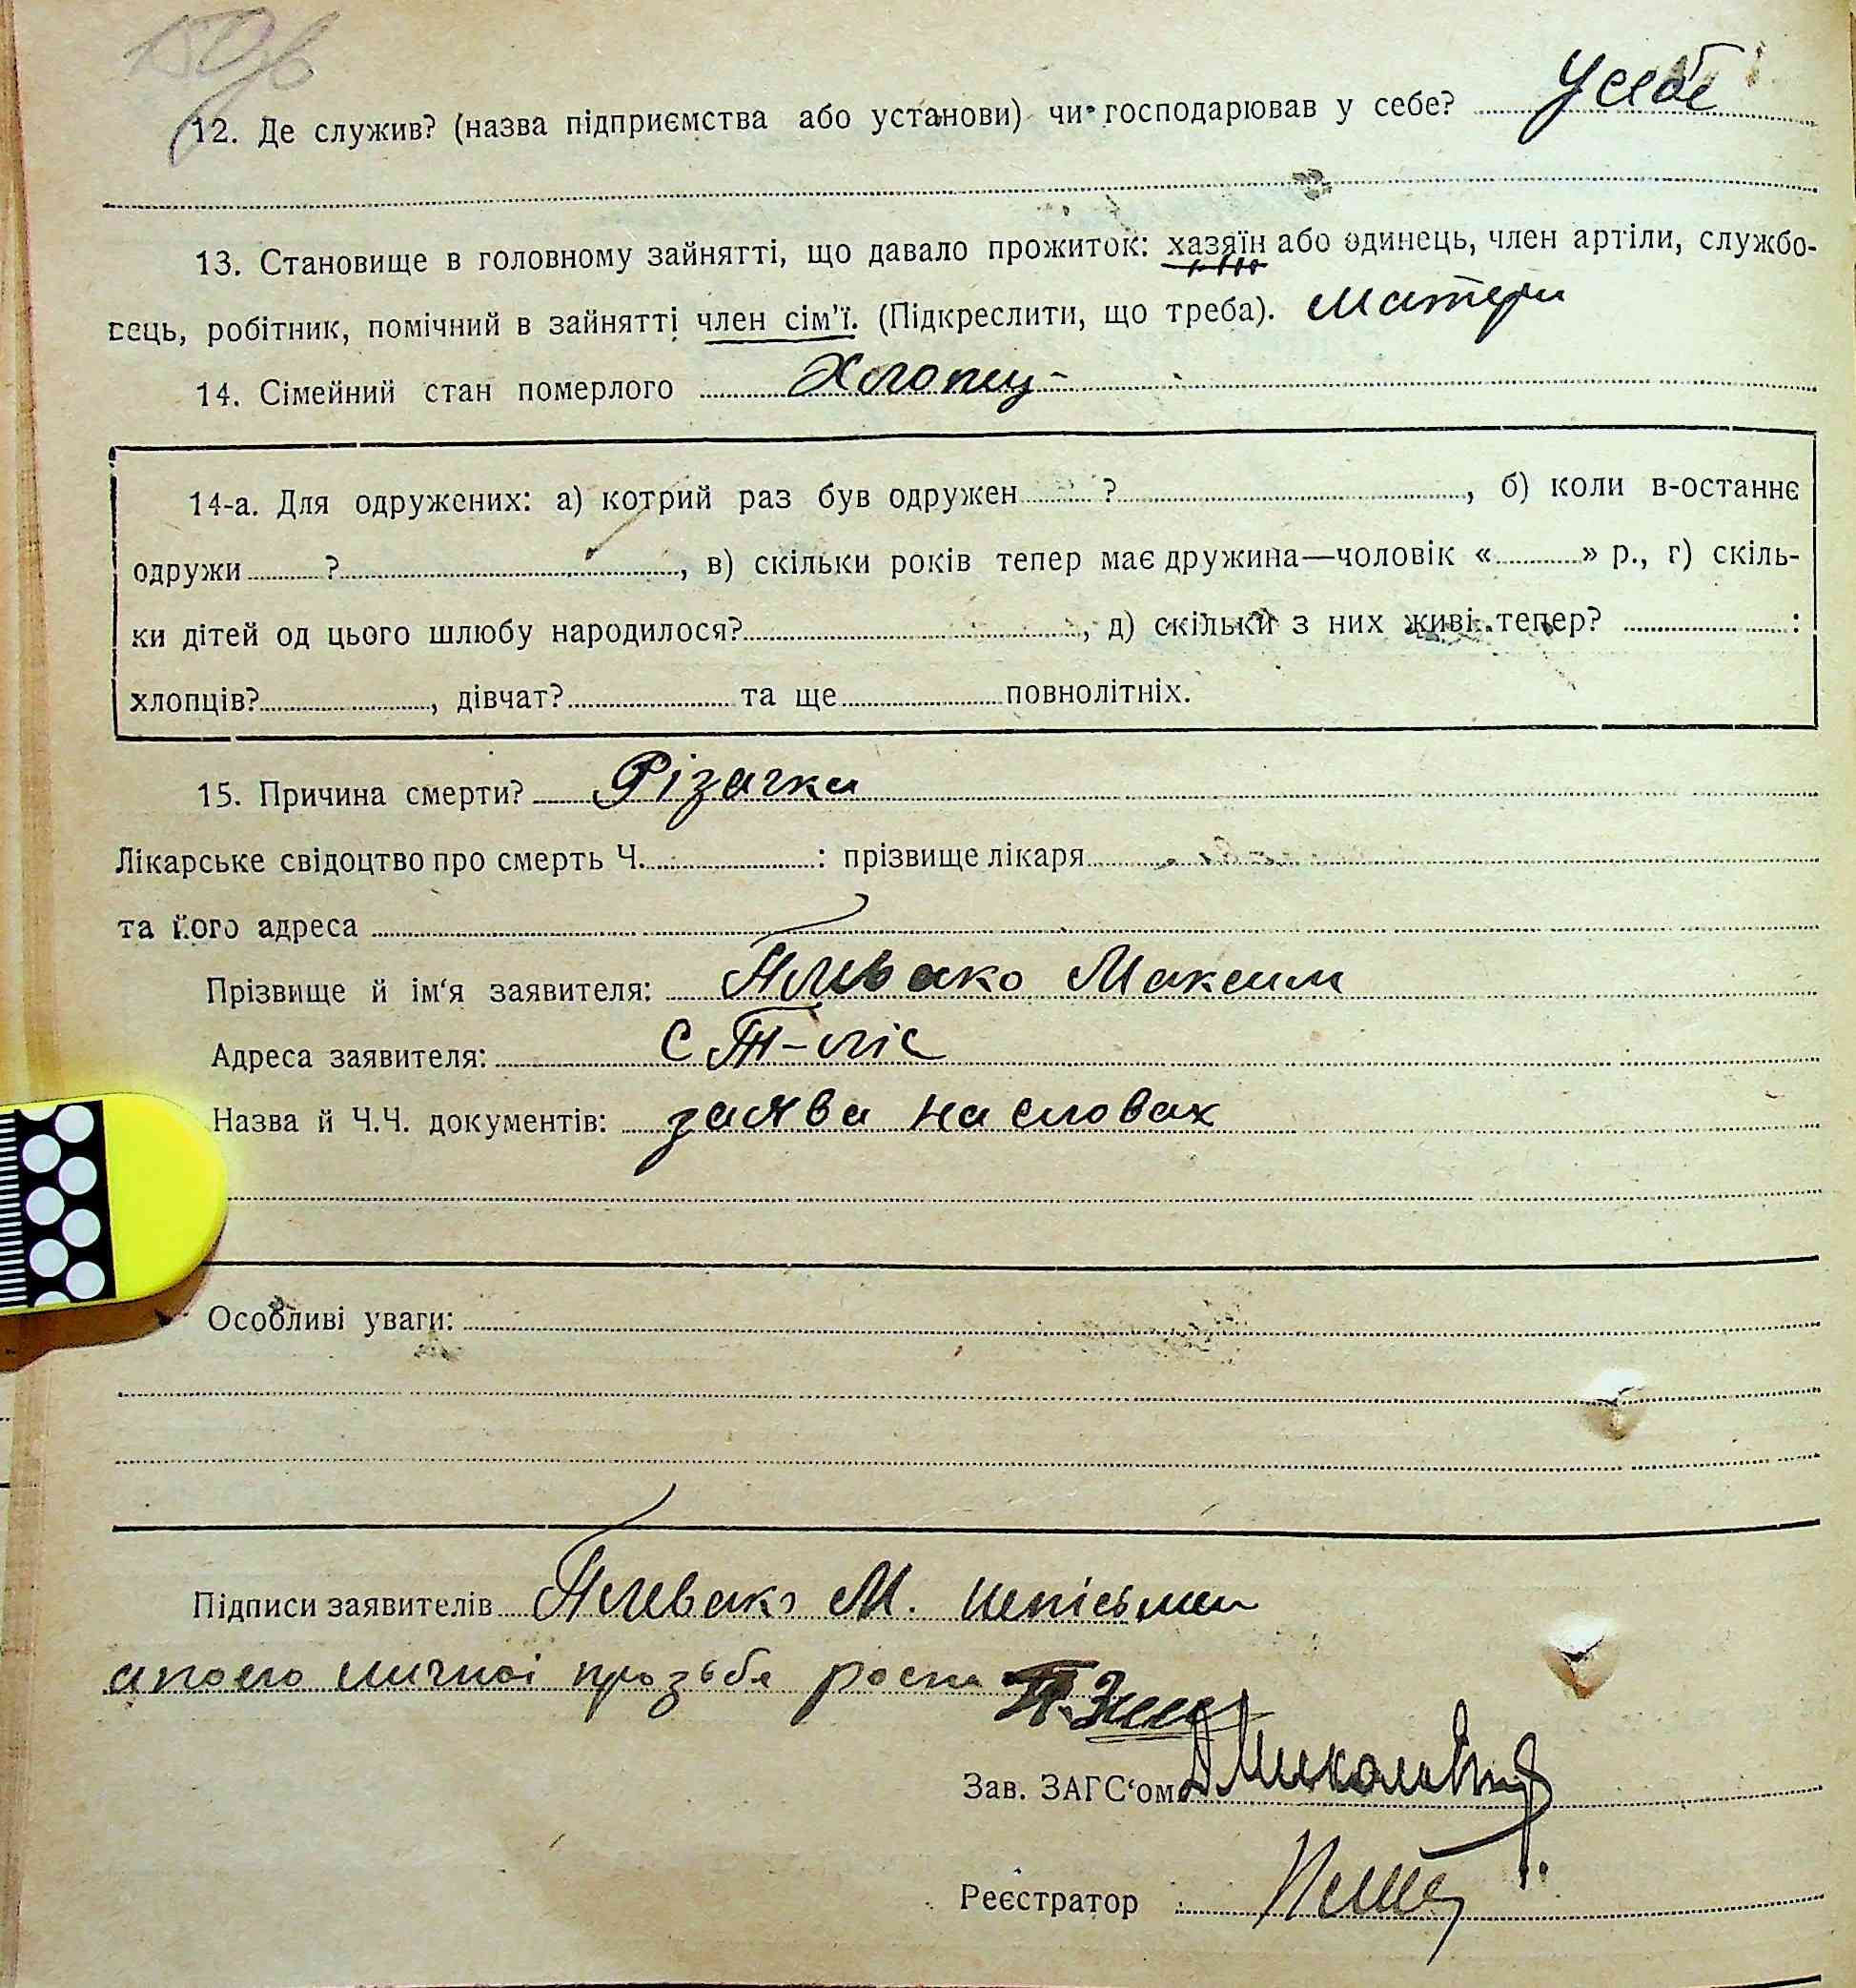 12. Де служив? (назва підприємства або установи) чи господарював у себе? У себе
13. Становище в головному зайнятті, що давало прожиток: хазяїн або одинець, член артіли, службо-
вець, робітник, помічний в зайнятті член сім'ї. (Підкреслити, що треба). матери
14. Сімейний стан померлого Хлопец
14-а. Для одружених: а) котрий раз був одружен ?, б) коли в-останнє
одружи ?, в) скільки років тепер має дружина—чоловік « » р., г) скіль-
ки дітей од цього шлюбу народилося?, д) скільки з них живі тепер? :
хлопців?, дівчат? та ще повнолітніх.
15. Причина смерти? Різачка
Лікарське свідоцтво про смерть Ч. : прізвище лікаря
та його адреса
Прізвище й ім'я заявителя: Плевако Максим
Адреса заявителя: с Т-ліс
Назва й Ч.Ч. документів: заява на словах
Особливі уваги:
Підписи заявителів Плевако М. непісьмен
а по его личноі прозьбе
Зав. ЗАГС'ом
Реєстратор